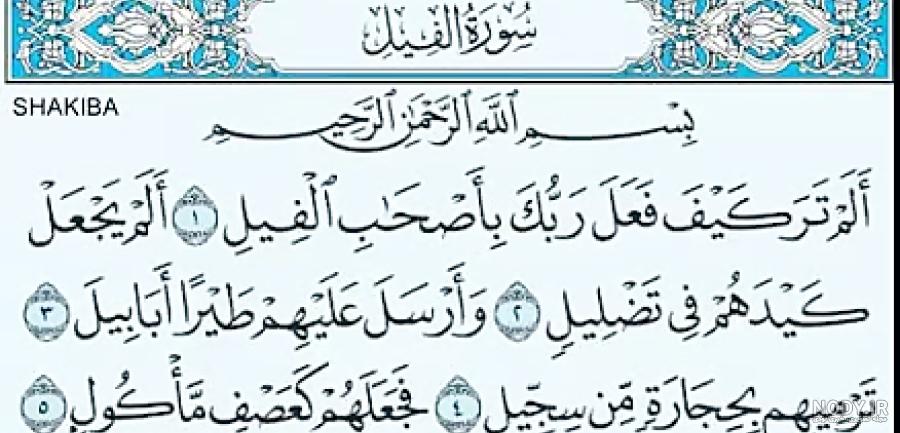 سُورَةُ الفِيلِ
SHAKIBA
بِسْمِ ٱللَّهِ ٱلرَّحْمَٰنِ ٱلرَّحِيمِ
أَلَمْ تَرَ كَيْفَ فَعَلَ رَبُّكَ بِأَصْحَٰبِ ٱلْفِيلِ ١ أَلَمْ يَجْعَلْ
كَيْدَهُمْ فِى تَضْلِيلٍ ٢ وَأَرْسَلَ عَلَيْهِمْ طَيْرًا أَبَابِيلَ ٣
تَرْمِيهِم بِحِجَارَةٍ مِّن سِجِّيلٍ ٤ فَجَعَلَهُمْ كَعَصْفٍ مَّأْكُولٍۭ ٥
NODY.IR